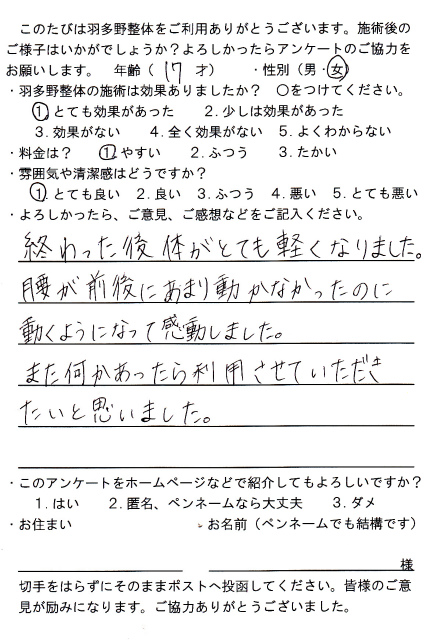 このたびは羽多野整体をご利用ありがとうございます。施術後の
ご様子はいかがでしょうか？よろしかったらアンケートのご協力を
お願いします。　年齢（ 17 才）　・性別（男・女）
・羽多野整体の施術は効果ありましたか？　○をつけてください。
1. とても効果があった　2. 少しは効果があった
3. 効果がない　4. 全く効果がない　5. よくわからない
・料金は？　1. やすい　2. ふつう　3. たかい
・雰囲気や清潔感はどうですか？
1. とても良い　2. 良い　3. ふつう　4. 悪い　5. とても悪い
・よろしかったら、ご意見、ご感想などをご記入ください。
終わった後 体がとても軽くなりました。
腰が前後にあまり動かなかったのに
動くようになって感動しました。
また何かあったら利用させていただき
たいと思いました。
・このアンケートをホームページなどで紹介してもよろしいですか？
1. はい　2. 匿名、ペンネームなら大丈夫　3. ダメ
・お住まい　・お名前（ペンネームでも結構です）
様
切手をはらずにそのままポストへ投函してください。皆様のご意
見が励みになります。ご協力ありがとうございました。